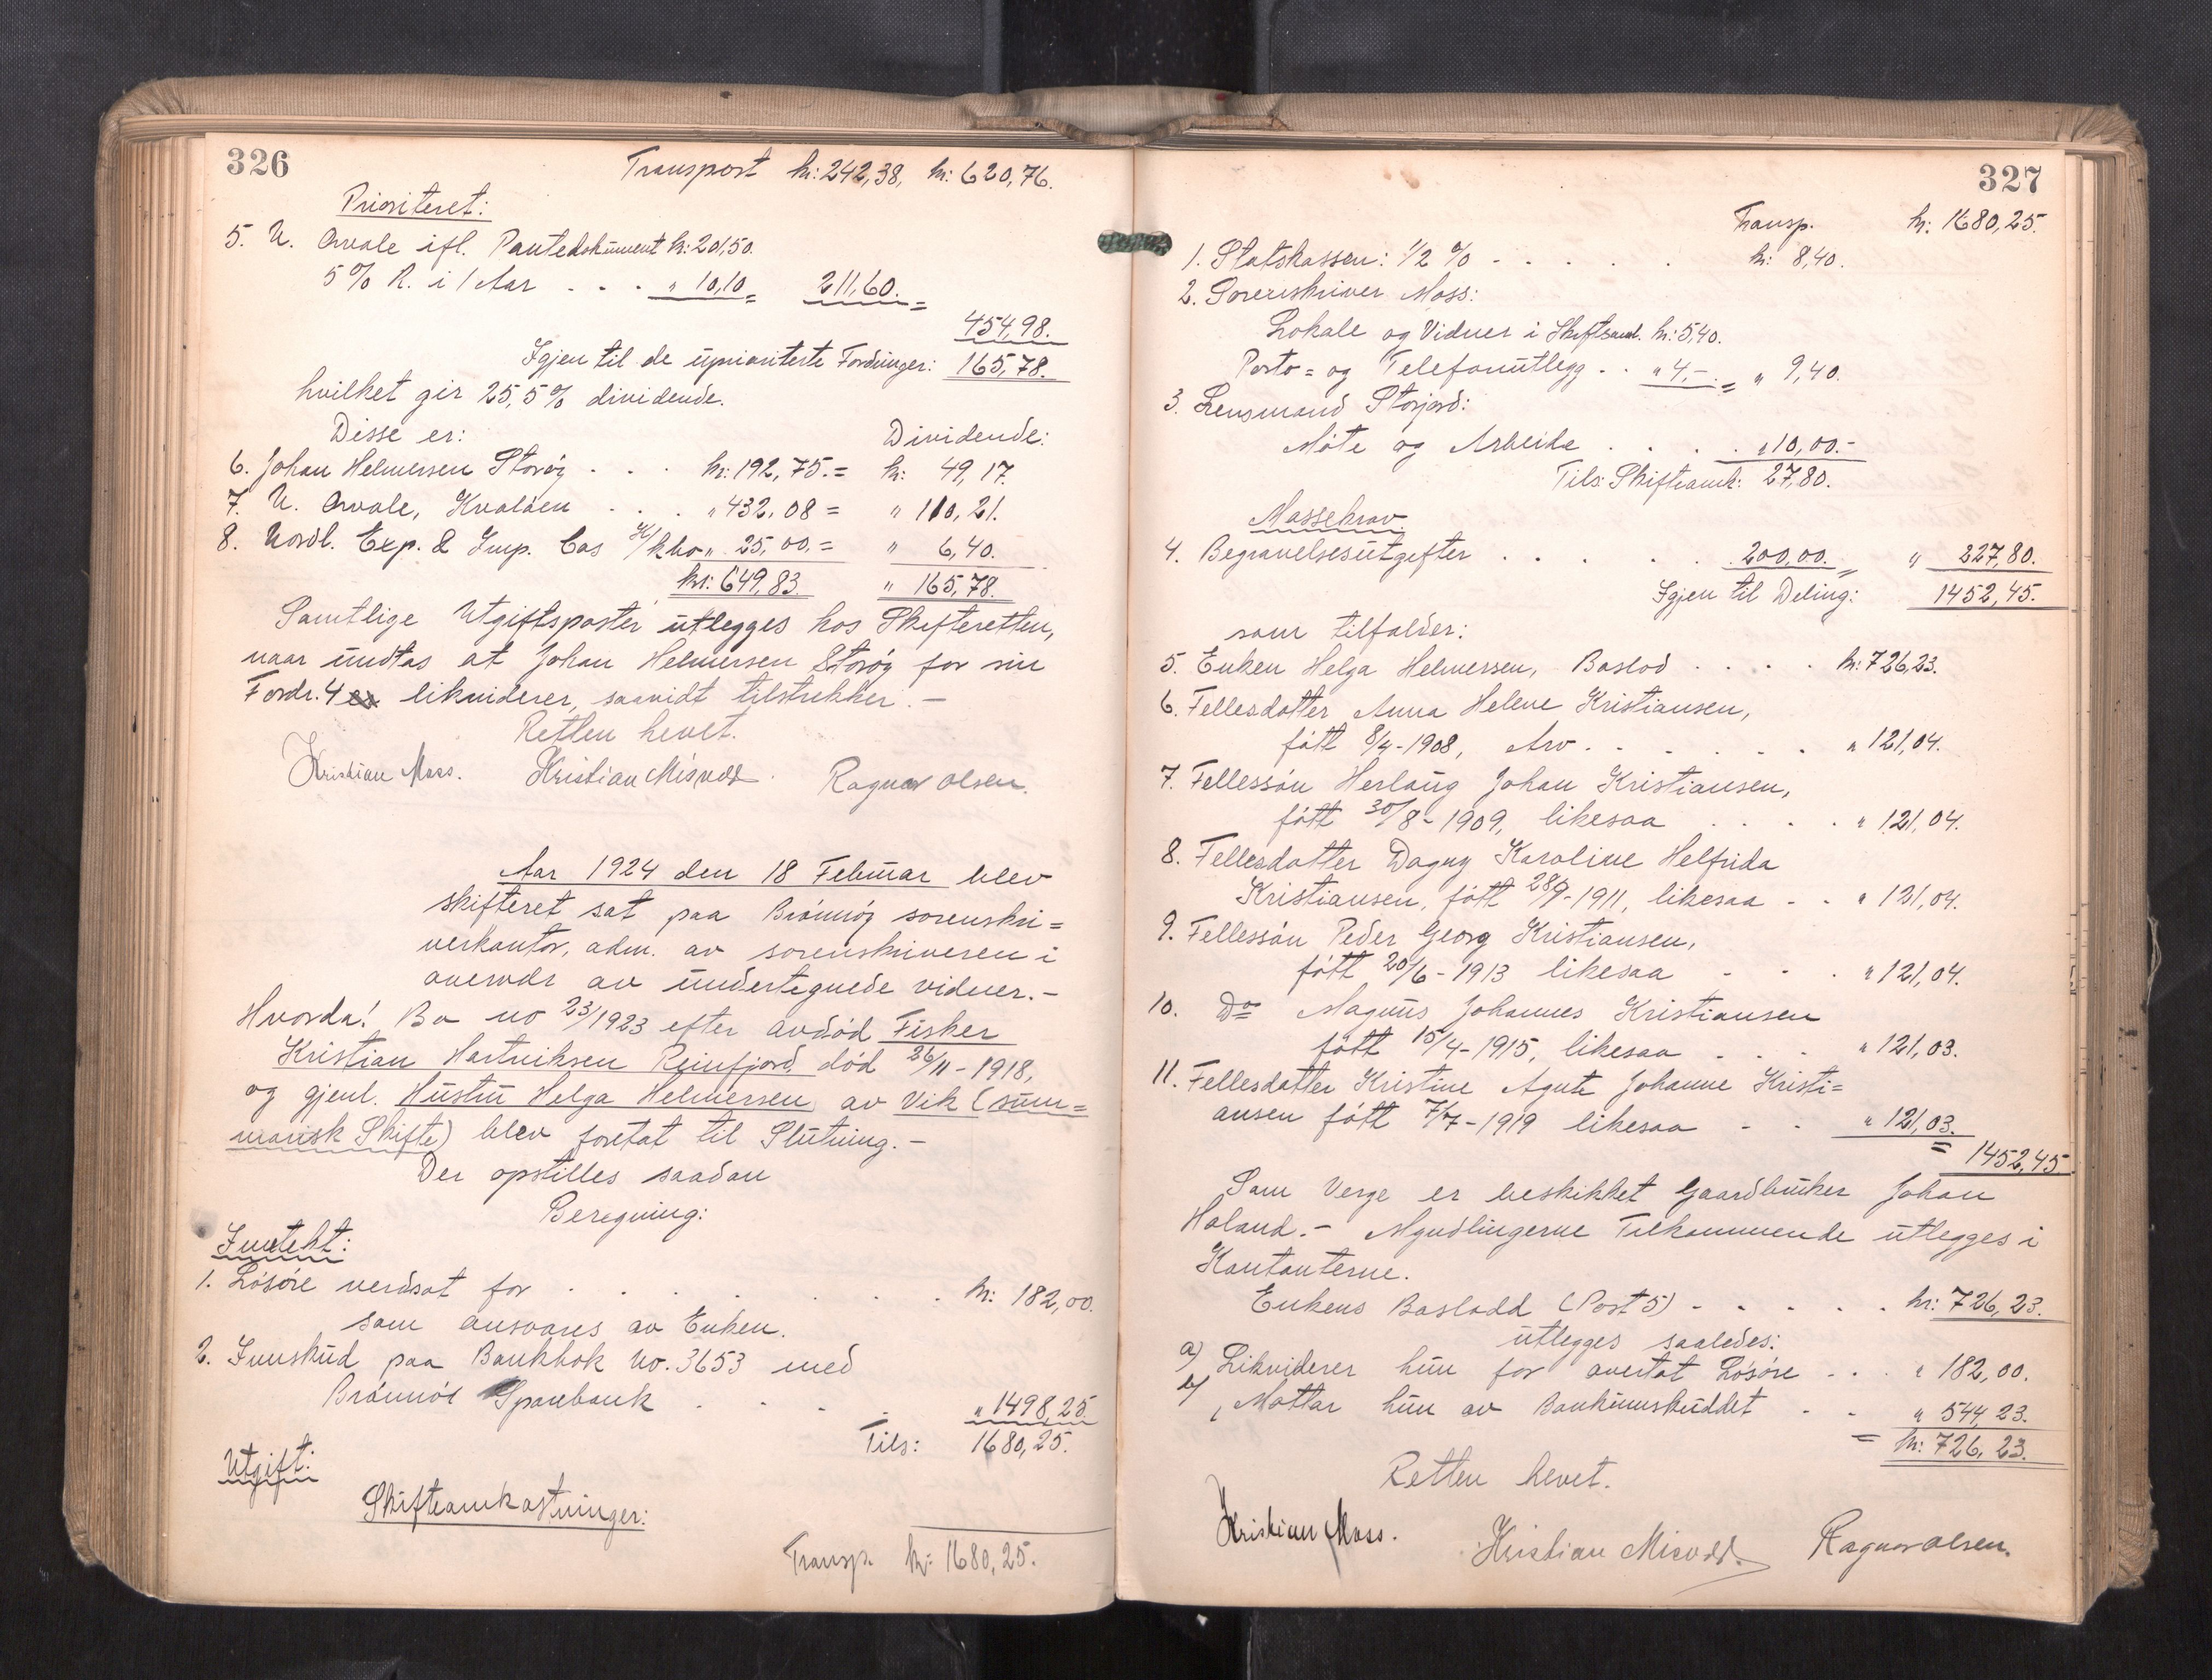 326
Transport kr: 242,38, kr: 620,76.
Prioriteret:
5. U. Arvale ifl. Pantedokument kr: 201,50.
5% R. i 1 Aar - - - " 10,10 = 211,60. =
454,98.
Igjen til de uprioriterte Fordringer: 165,78.
hvilket gir 25,5% dividende.
Disse er: Dividende:
6. Johan Helmersen Storöy - - - kr: 192,75. = kr: 49,17.
7. U. Arvale, Kvalöen - - - " 432,08 = " 110,21.
8. Nordl. Exp. & Imp. Cos K/kbo " 25,00. = " 6,40.
kr: 649,83. " 165,78.
Samtlige Utgiftsposter utlegges hos Skifteretten,
naar undtas at Johan Helmersen Storöy for sin
Fordr. 4 likviderer, saavidt tilstrekker. -
Retten hevet.
Kristian Moss. Kristian Misvær. Ragnar Olsen.
Aar 1924 den 18 Februar blev
skifteret sat paa Brönnöy sorenskri=
verkontor, adm. av sorenskriveren i
overvær av undertegnede vidner. -
Hvorda! Bo no 23/1923 efter avdöd Fisker
Kristian Hartviksen Reinfjord, död 26/11 - 1918,
og gjenl. Hustru Helga Helmersen av Vik (sum=
marisk Skifte) blev foretat til Slutning. -
Der opstilles saadan
Beregning:
Inntekt:
1. Lösöre verdsat for - - - - - - - kr: 182,00.
som ansvares av Enken.
2. Innskud paa Bankbok No. 3653 med
Brönnöi Sparebank - - - - " 1498,25
Tils: 1680,25.
Utgift:
Skifteomkostninger:
Transp. kr: 1680,25.
327
Transp. kr: 1680,25.
1. Statskassen: 1/2 % - - - - - kr: 8,40.
2. Sorenskriver Moss:
Lokale og Vidner i Skiftsaml. kr: 5,40.
Porto= og Telefonutlegg - - " 4,- = " 9,40.
3. Lensmand Storjord:
Möte og Arbeide - - - - " 10,00.-
Tils: Skifteomk: 27,80.
Massekrav.
4. Begravelsesutgifter - - - - - 200,00. = " 227,80.
Igjen til Deling: 1452,45.
som tilfalder:
5. Enken Helga Helmersen, Boslod - - - - kr: 726,23.
6. Fellesdatter Anna Helene Kristiansen,
fött 8/4 - 1908, Arv - - - - - - " 121,04.
7. Fellessön Herlaug Johan Kristiansen,
fött 30/8 - 1909, likesaa - - - - " 121,04.
8. Fellesdatter Dagny Karoline Helfrida
Kristiansen, fött 28/9 - 1911, likesaa - - " 121,04.
9. Fellessön Peder Georg Kristiansen,
fött 20/6 - 1913 likesaa - - - " 121,04.
10. Do Magnus Johannes Kristiansen
fött 15/4 - 1915, likesaa - - - " 121,03.
11. Fellesdatter Kristine Agute Johanne Kristi=
ansen fött 7/7 - 1919 likesaa - - " 121,03.
= 1452,45
Som Verge er beskikket Gaardbruker Johan
Holand. - Myndlingerne Tilkommende utlegges i
Kontanterne.
Enkens Boslodd (Post 5) - - - - - kr: 726,23.
utlegges saaledes:
a) Likviderer hun for overtat Lösöre - - - " 182,00.
b) Mottar hun av Bankinnskuddet - - " 544,23.
= kr: 726,23.
Retten hevet.
Kristian Moss. Kristian Misvær. Ragnar Olsen.